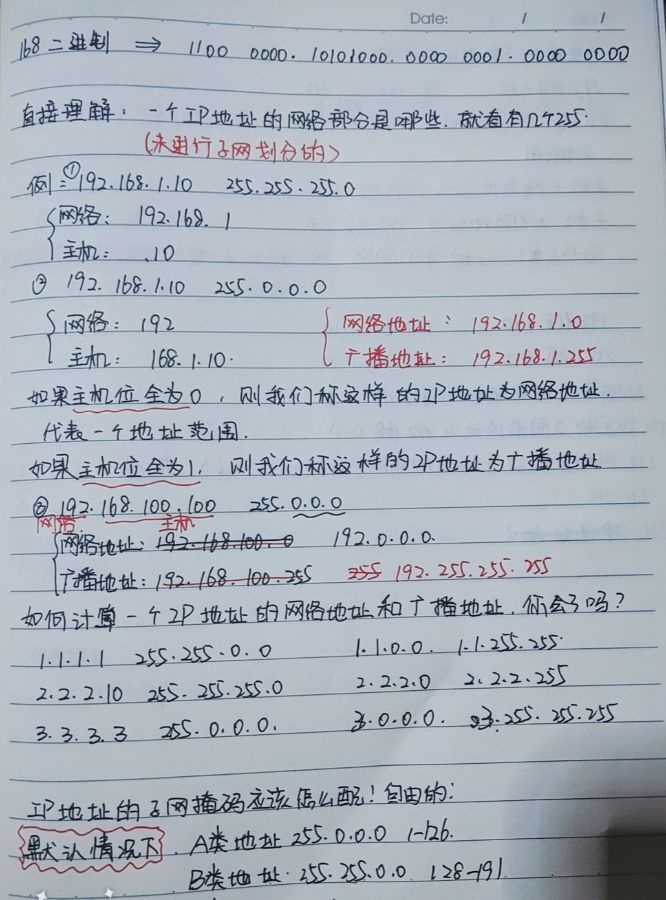 Date: / /
168 二进制 ⇒ 1100 0000. 10101000. 0000 0001. 0000 0000
直接理解：一个IP地址的网络部分是哪些. 就看有几个255.
(未进行子网划分的)
例：① 192.168.1.10 255.255.255.0
网络： 192.168.1
主机： .10
② 192.168.1.10 255.0.0.0
网络：192 网络地址： 192.168.1.0
主机： 168.1.10. 广播地址： 192.168.1.255
如果主机位全为0，则我们称这样的IP地址为网络地址.
代表一个地址范围.
如果主机位全为1，则我们称这样的IP地址为广播地址.
③ 192.168.100.100 255.0.0.0
网络 主机
网络地址：192.168.100.0 192.0.0.0.
广播地址：192.168.100.255 255 192.255.255.255
如何计算一个IP地址的网络地址和广播地址. 你会了吗？
1.1.1.1 255.255.0.0 1.1.0.0. 1.1.255.255.
2.2.2.10 255.255.255.0 2.2.2.0 2.2.2.255
3.3.3.3 255.0.0.0. 3.0.0.0. 3.255.255.255
IP地址的子网掩码应该怎么配！自由的：
默认情况下. A类地址 255.0.0.0 1-126.
B类地址. 255.255.0.0 128-191